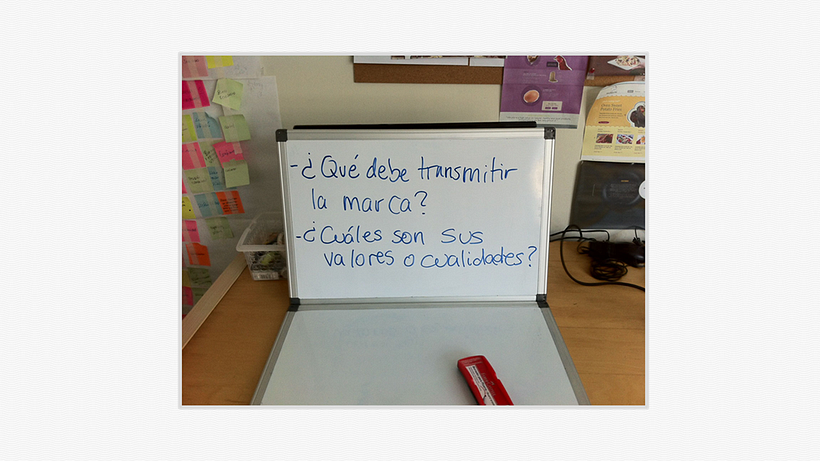 -¿Qué debe transmitir
la marca?
-¿Cuáles son sus
valores o cualidades?